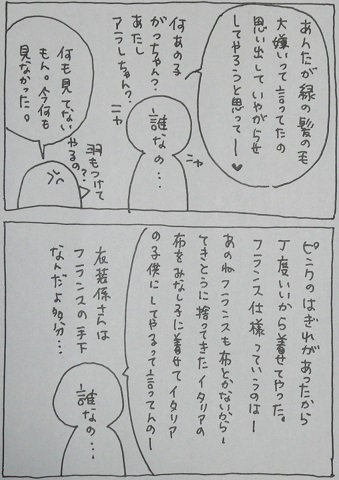 あんたが緑の髪の毛
大嫌いって言ってたの
思い出していやがらせ
してやろうと思ってー♥
何あの子
がっちゃん?
あたし
アラレちゃん?
ニヤ
ニヤ
誰なの…
羽もつけて
やるの?
何も見てない
もん。今何も
見なかった。
ピンクのはぎれがあったから
丁度いいから着せてやった。
フランス仕様っていうのはー
あのねフランスも布とかないからー
てきとうに捨ってきたイタリアの
布をみなし子に着せてイタリア
の子供にしてやるって言ってんのー
誰なの…
衣装係さんは
フランスの手下
なんだよ多分…